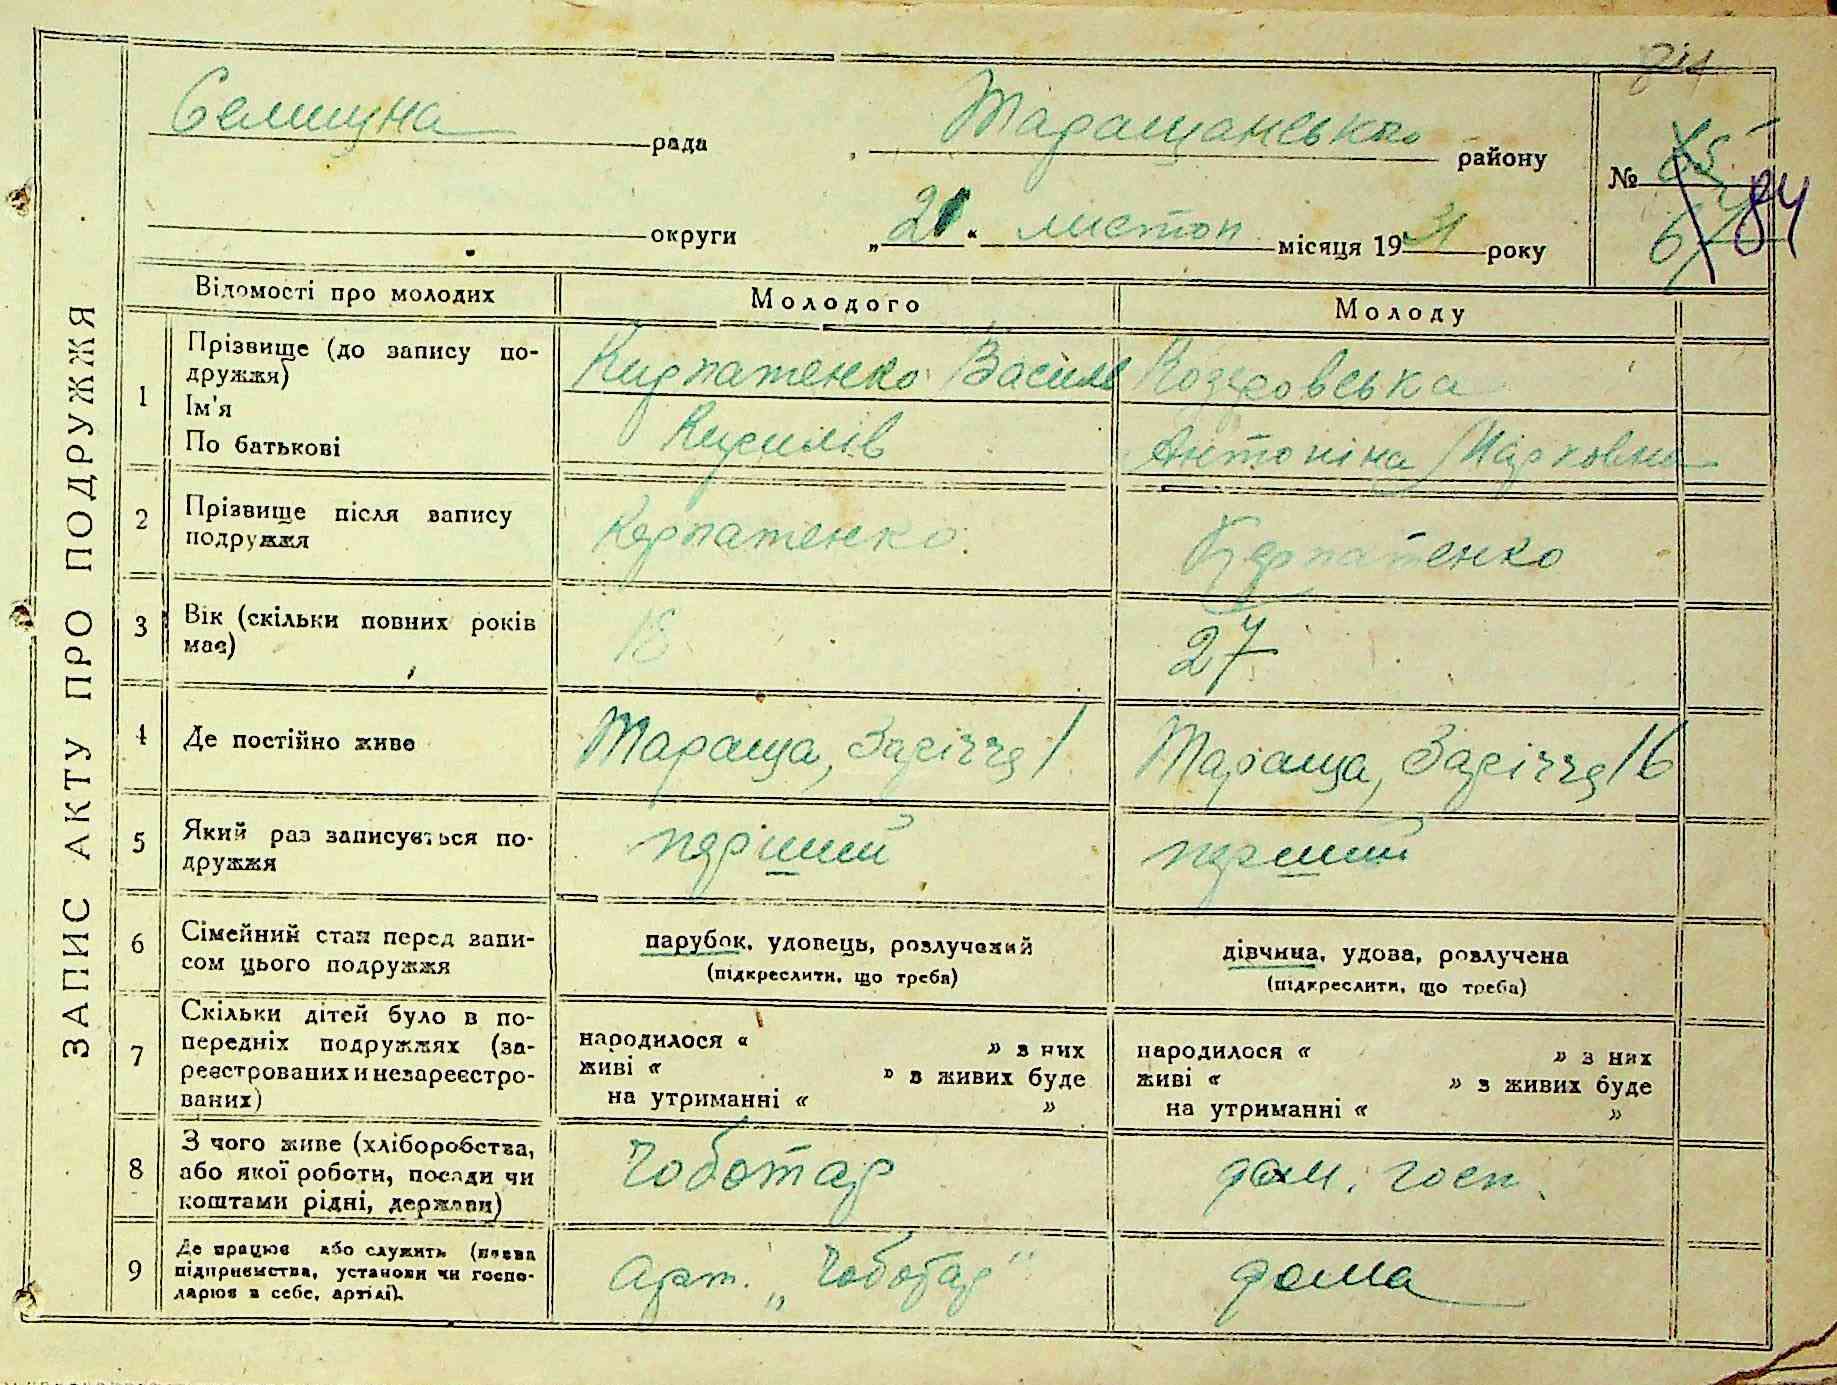 Селищна рада Таращанського району
№ 84
округи „21“ листоп місяця 1931 року
ЗАПИС АКТУ ПРО ПОДРУЖЖЯ
Відомості про молодих Молодого Молоду
1 Прізвище (до запису по-
дружжя)
Ім'я
По батькові
Кирпатенко Василь
Кирилів
Козловська
Антоніна Марковна
2 Прізвище після запису
подружжя
Керпатенко
Керпатенко
3 Вік (скільки повних років
має)
18
27
4 Де постійно живе
Тараща, Заріччя 1
Тараща, Заріччя 16
5 Який раз записується по-
дружжя
перший
перший
6 Сімейний стан перед запи-
сом цього подружжя
парубок, удовець, розлучений
(підкреслити, що треба)
дівчина, удова, розлучена
(підкреслити, що треба)
7 Скільки дітей було в по-
передніх подружжях (за-
реєстрованих и незареєстро-
ваних)
народилося « » з них
живі « » з живих буде
на утриманні « »
народилося « » з них
живі « » з живих буде
на утриманні « »
8 З чого живе (хліборобства,
або якої роботи, посади чи
коштами рідні, держави)
Чоботар
дом. госп.
9 Де працює або служить (назва
підприємства, установи чи госпо-
дарює в себе, артілі).
Арт. „Чоботар"
дома